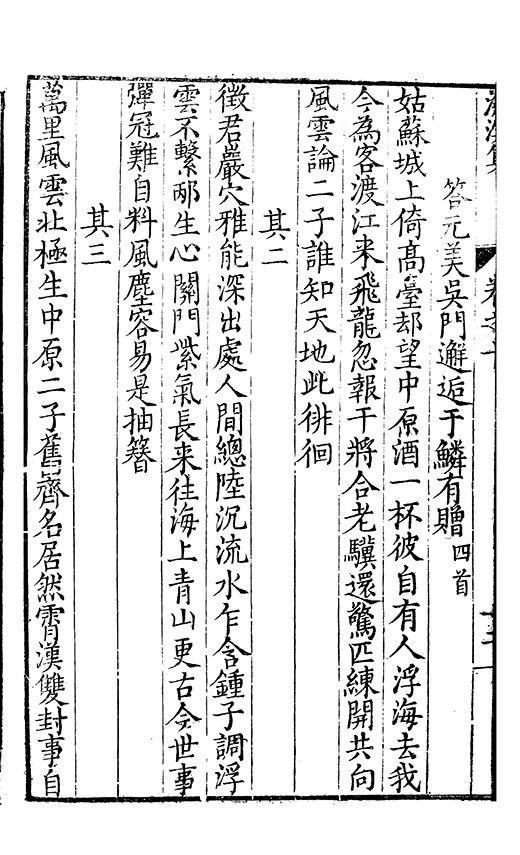 答元美吳門邂逅于鱗有贈四首
姑蘇城上倚髙臺却望中原酒一杯彼自有人浮海去我
今為客渡江来飛龍忽報干將合老驥還驚匹練開共向
風雲論二子誰知天地此徘徊
其二
徵君巖穴雅能深出處人間總陸沉流水乍含鍾子調浮
雲不繫邴生心關門紫氣長来往海上青山更古今世事
彈冠難自料風塵容易是抽簪
其三
萬里風雲北極生中原二子舊齊名居然霄漢雙封事自